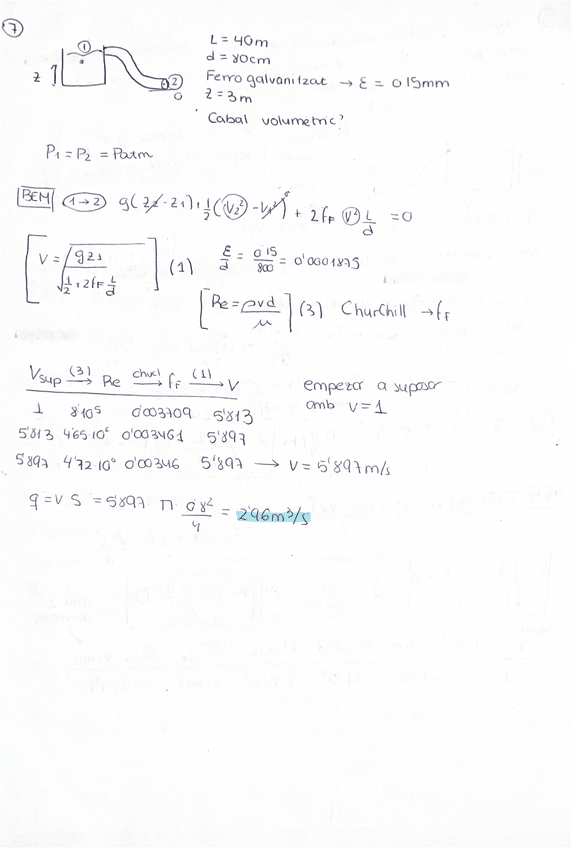 7
1
2
z
0
L = 40m
d = 80cm
Ferro galvanitzat → ε = 0'15mm
z = 3m
Cabal volumetric?
P1 = P2 = Patm
BEM 1→2 g(z2 - z1) + 1/2 (V2² - V1²) + 2fF V² L/d = 0
[V = √(gz1 / (1/2 + 2fF L/d))] (1) ε/d = 0'15/800 = 0'0001875
[Re = ρvd/μ] (3) Churchill → fF
Vsup (3)→ Re churcl→ fF (1)→ V
empezar a suposar
amb v=1
1 8'10⁵ 0'003709 5'813
5'813 4'65·10⁶ 0'003461 5'897
5'897 4'72·10⁶ 0'00346 5'897 → V = 5'897m/s
q = v S = 5'897 π · 0'8²/4 = 2'96m³/s